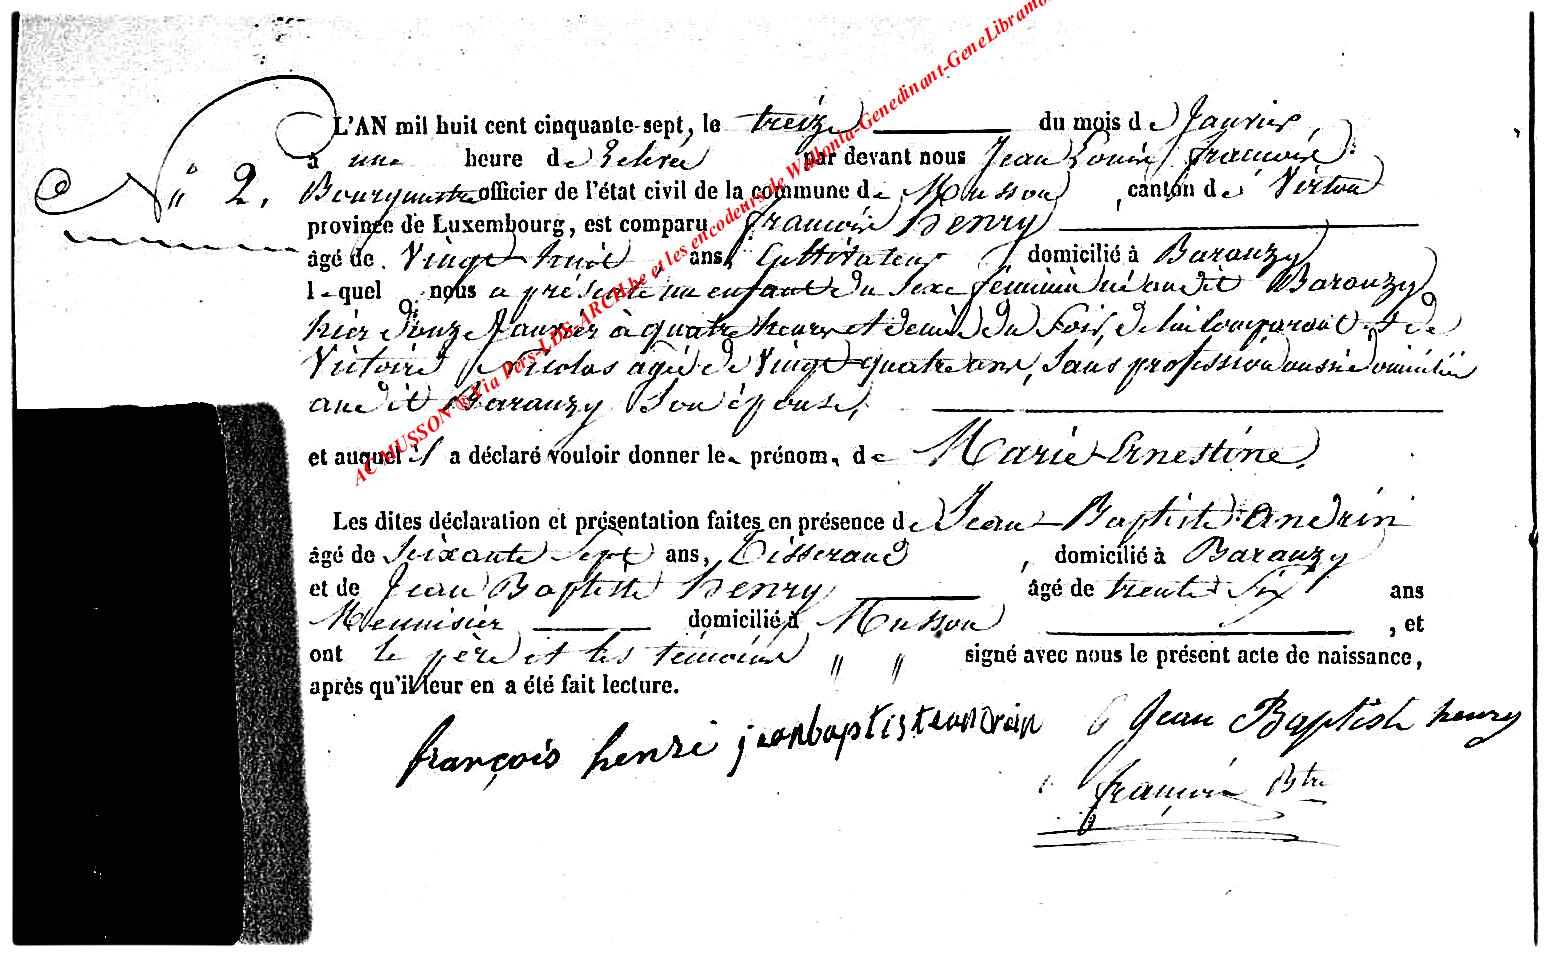 L'AN mil huit cent cinquante-sept, le treize du mois de Janvier,
à une heure de relevée par devant nous Jean Louis françois
N° 2. Bourgmestre officier de l'état civil de la commune de Musson, canton de Virton
province de Luxembourg, est comparu françois henry
âgé de Vingt huit ans, Cultivateur domicilié à Baranzy
lequel nous a présenté un enfant du sexe féminin né audit Baranzy
hier douze Janvier à quatre heures et demie du Soir, de lui comparant et de
Victoire Nicolas agée de Vingt quatre ans, Sans profession aussi domiciliée
audit Baranzy Son épouse,
et auquel il a déclaré vouloir donner les prénoms de Marie Ernestine.
Les dites déclaration et présentation faites en présence de Jean-Baptiste andrin
âgé de Soixante Sept ans, Tisserand, domicilié à Baranzy
et de Jean Baptiste henry âgé de trente Six ans
Menuisier domicilié à Musson, et
ont le père et les témoins " " signé avec nous le présent acte de naissance,
après qu'il leur en a été fait lecture.
françois henri jeanbaptisteandrin Jean Baptiste henry
françois Btre
AC MUSSON ® Via Pers-LDS-ARCH.be et les encodeurs de Wallonia-Genedinant-GeneLibramo